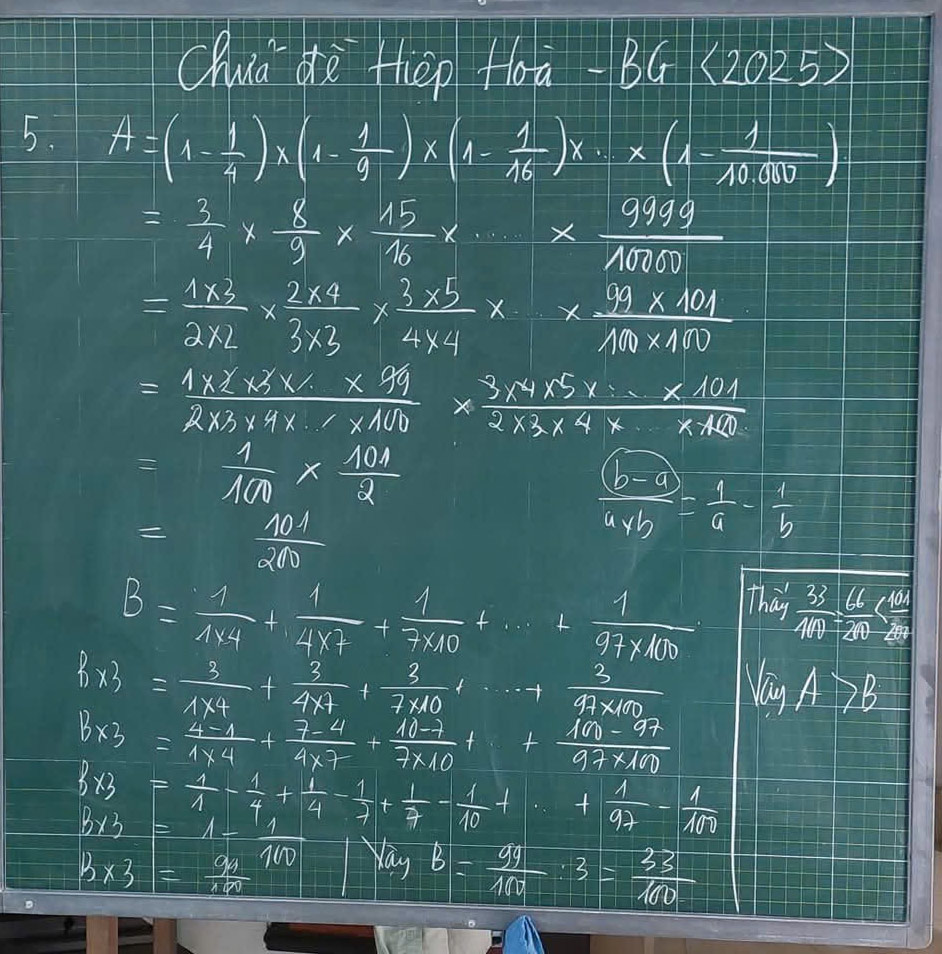 Chữa đề Hiệp Hoà - BG <2025>
5. A = (1 - 1/4) × (1 - 1/9) × (1 - 1/16) × ... × (1 - 1/10.000)
= 3/4 × 8/9 × 15/16 × ..... × 9999/10000
= 1×3/2×2 × 2×4/3×3 × 3×5/4×4 × ... × 99×101/100×100
= 1×2×3×... ×99/2×3×4×... ×100 × 3×4×5×... ×101/2×3×4× ... ×100
= 1/100 × 101/2
= 101/200
b-a/a×b = 1/a - 1/b
B = 1/1×4 + 1/4×7 + 1/7×10 + ... + 1/97×100
B×3 = 3/1×4 + 3/4×7 + 3/7×10 + ..... + 3/97×100
B×3 = 4-1/1×4 + 7-4/4×7 + 10-7/7×10 + .. + 100-97/97×100
B×3 = 1/1 - 1/4 + 1/4 - 1/7 + 1/7 - 1/10 + .. + 1/97 - 1/100
B×3 = 1 - 1/100
B×3 = 99/100
Vậy B = 99/100 : 3 = 33/100
Thấy 33/100 = 66/200 < 101/200
Vậy A > B